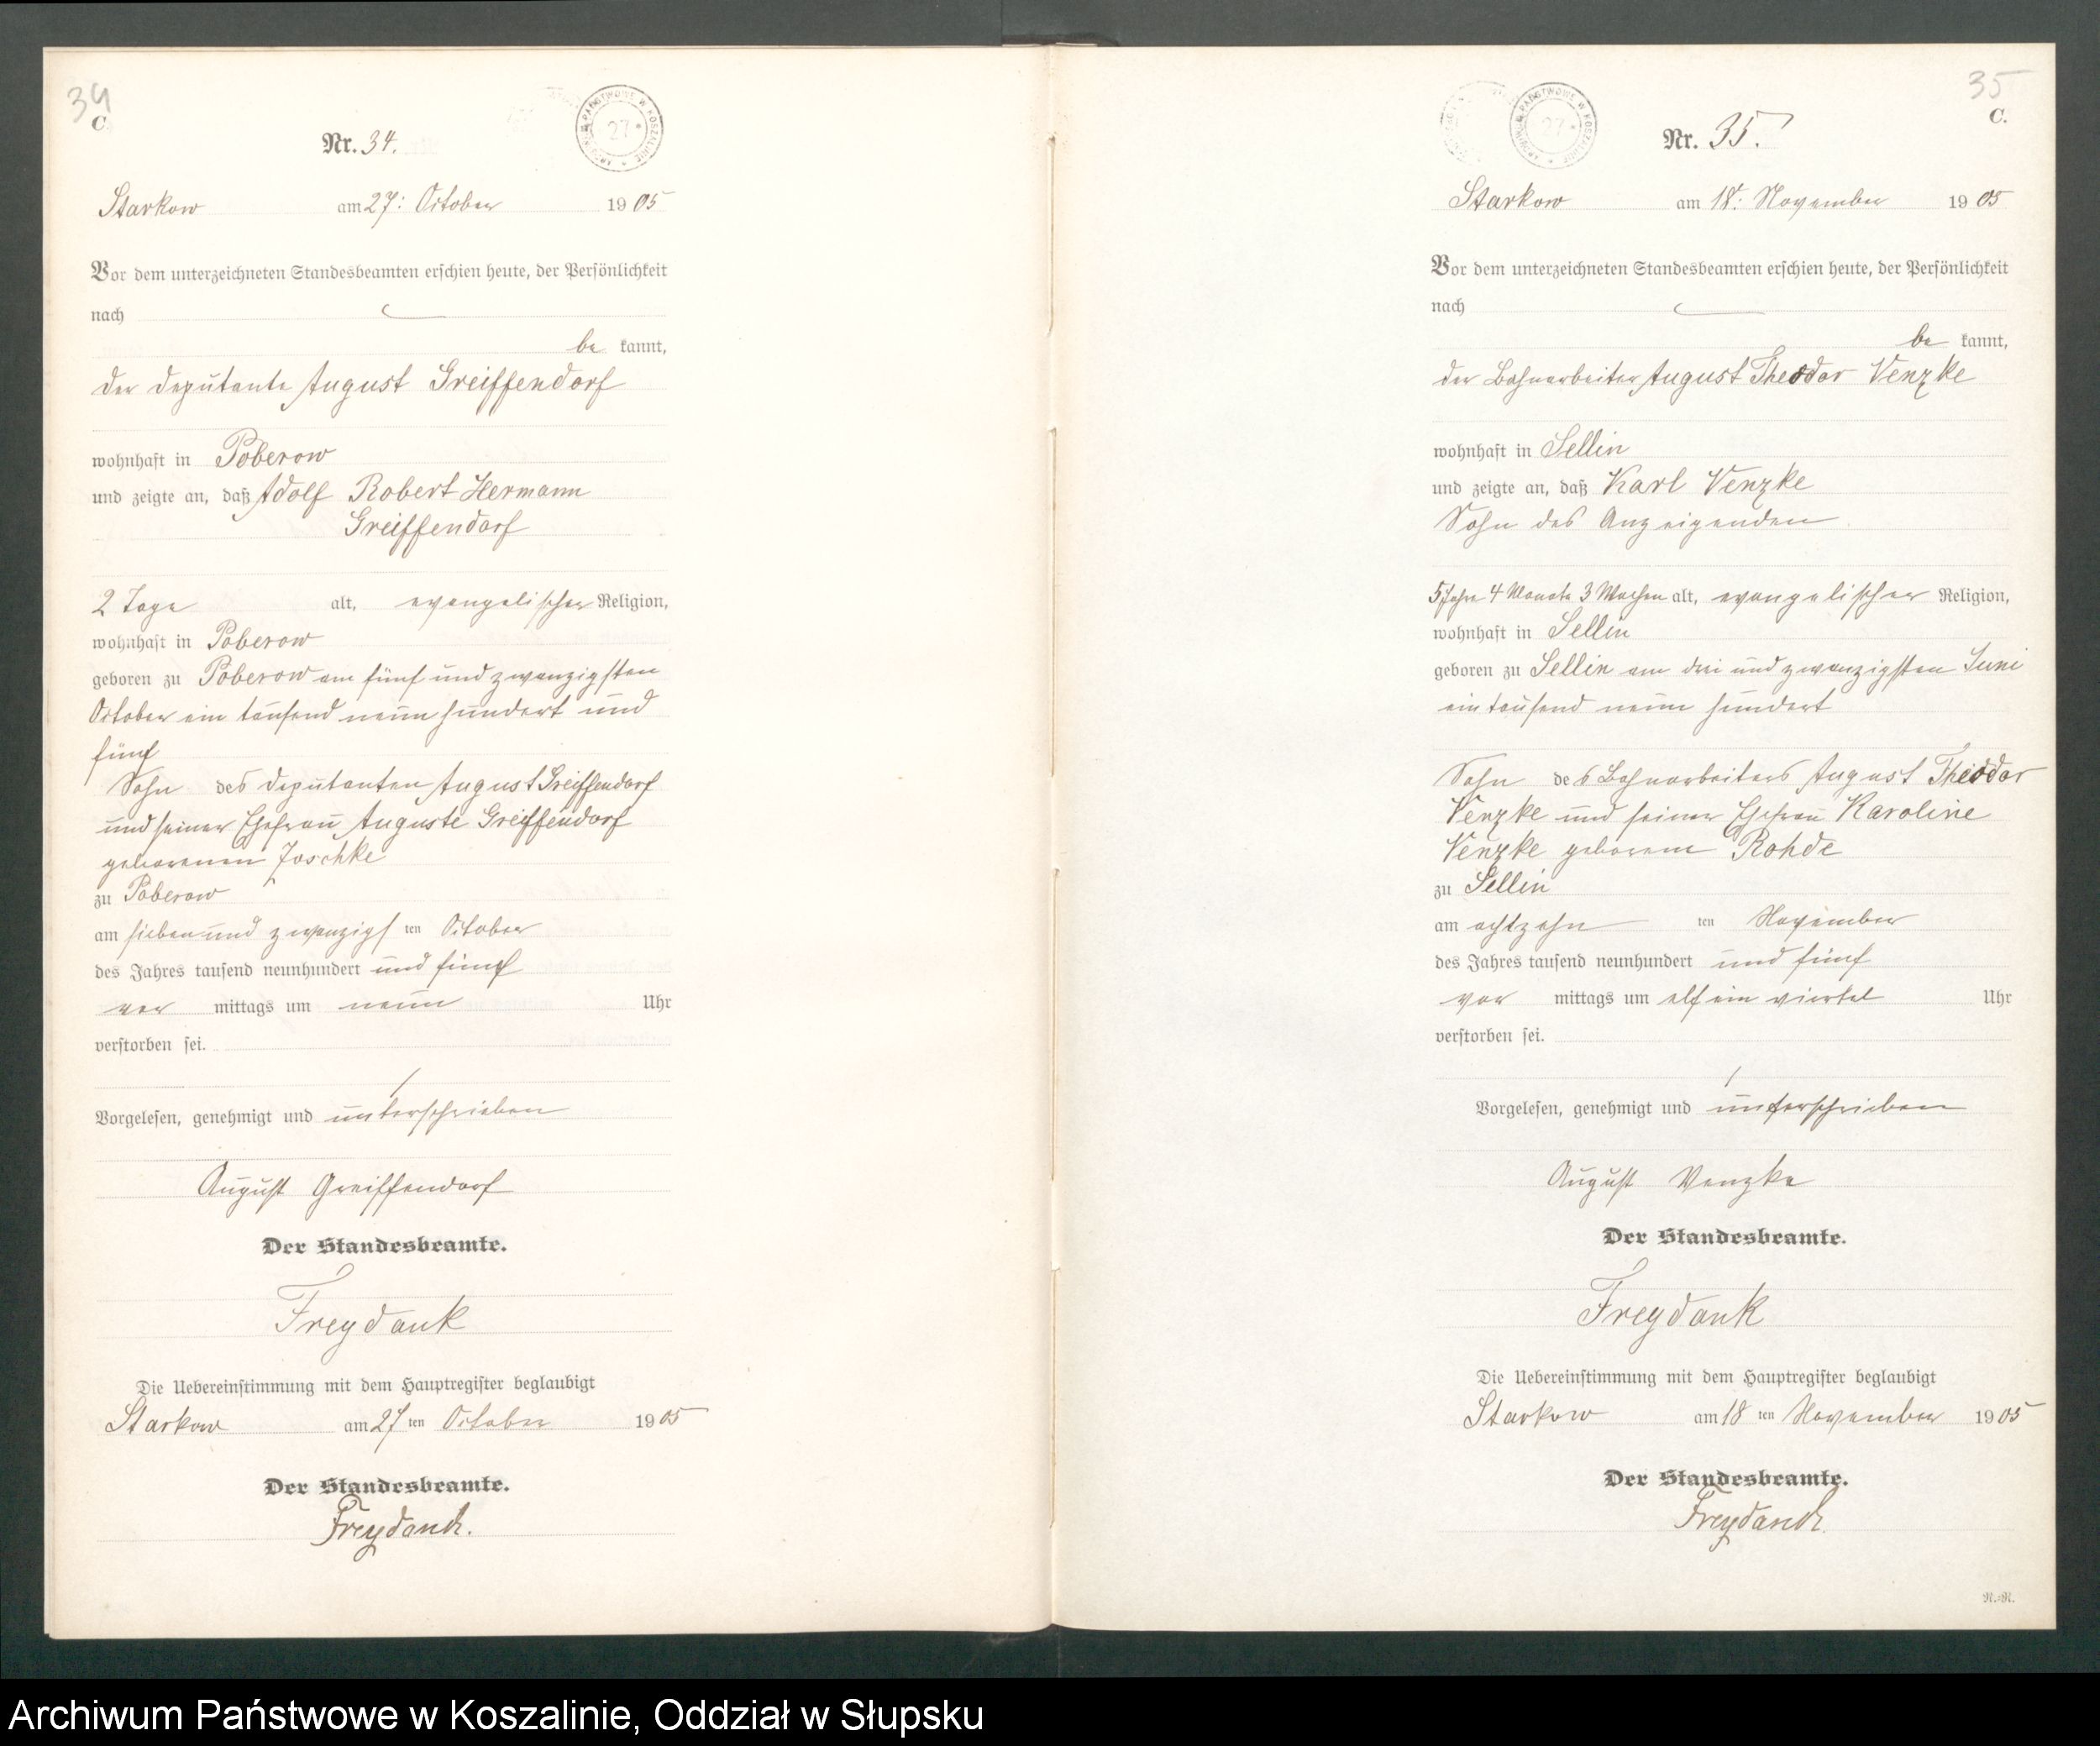 34
C.
Nr. 34.
ARCHIWUM PAŃSTWOWE W KOSZALINIE * 27 *
Starkow am 27: October 1905
Vor dem unterzeichneten Standesbeamten erschien heute, der Persönlichkeit
nach
be kannt,
der Deputante August Greiffendorf
wohnhaft in Poberow
und zeigte an, daß Adolf Robert Hermann
Greiffendorf
2 Tage alt, evangelischer Religion,
wohnhaft in Poberow
geboren zu Poberow am fünf und zwanzigsten
October ein tausend neun hundert und
fünf
Sohn des Deputanten August Greiffendorf
und seiner Ehefrau Auguste Greiffendorf
geborenen Joschke
zu Poberow
am sieben und zwanzigs ten October
des Jahres tausend neunhundert und fünf
vor mittags um neun Uhr
verstorben sei.
Vorgelesen, genehmigt und unterschrieben
August Greiffendorf
Der Standesbeamte.
Freydank
Die Uebereinstimmung mit dem Hauptregister beglaubigt
Starkow am 27 ten October 1905
Der Standesbeamte.
Freydank.
35
C.
Nr. 35.
ARCHIWUM PAŃSTWOWE W KOSZALINIE * 27 *
Starkow am 18t: November 1905
Vor dem unterzeichneten Standesbeamten erschien heute, der Persönlichkeit
nach
be kannt,
der Bahnarbeiter August Theodor Venzke
wohnhaft in Sellin
und zeigte an, daß Karl Venzke
Sohn des Anzeigenden
5 Jahre 4 Monate 3 Wochen alt, evangelischer Religion,
wohnhaft in Sellin
geboren zu Sellin am drei und zwanzigsten Juni
ein tausend neun hundert
Sohn des Bahnarbeiters August Theodor
Venzke und seiner Ehefrau Karoline
Venzke geborene Rohde
zu Sellin
am achtzehn ten November
des Jahres tausend neunhundert und fünf
vor mittags um elf ein viertel Uhr
verstorben sei.
Vorgelesen, genehmigt und unterschrieben
August Venzke
Der Standesbeamte.
Freydank
Die Uebereinstimmung mit dem Hauptregister beglaubigt
Starkow am 18 ten November 1905
Der Standesbeamte.
Freydank.
N.-N.
Archiwum Państwowe w Koszalinie, Oddział w Słupsku